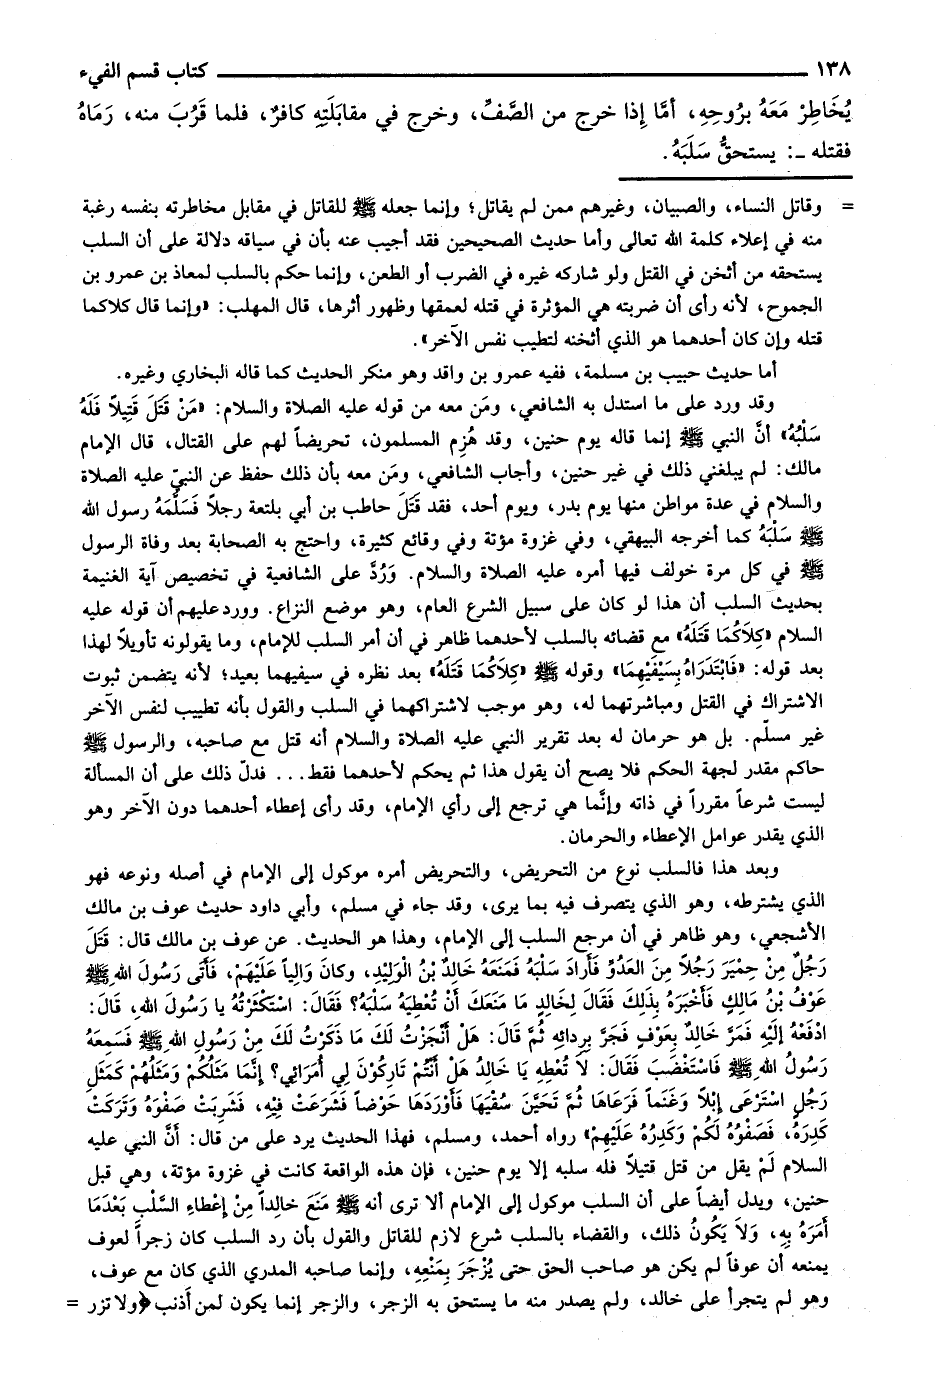 ١٣٨ كتاب قسم الفيء
يُخَاطِرْ مَعَهُ بِرُوحِهِ، أمَّا إِذا خرج من الصَّفِّ، وخرج في مقابَلَتِهِ كافرٌ، فلما قَرُبَ منه، رَمَاهُ
فقتله ـ: يستحقُّ سَلَبَهُ.
= وقاتل النساء، والصبيان، وغيرهم ممن لم يقاتل؛ وإنما جعله ﷺ للقاتل في مقابل مخاطرته بنفسه رغبة
منه في إعلاء كلمة الله تعالى وأما حديث الصحيحين فقد أجيب عنه بأن في سياقه دلالة على أن السلب
يستحقه من أثخن في القتل ولو شاركه غيره في الضرب أو الطعن، وإنما حكم بالسلب لمعاذ بن عمرو بن
الجموح، لأنه رأى أن ضربته هي المؤثرة في قتله لعمقها وظهور أثرها، قال المهلب: «وإنما قال كلاكما
قتله وإن كان أحدهما هو الذي أثخنه لتطيب نفس الآخر».
أما حديث حبيب بن مسلمة، ففيه عمرو بن واقد وهو منكر الحديث كما قاله البخاري وغيره.
وقد ورد على ما استدل به الشافعي، ومَن معه من قوله عليه الصلاة والسلام: «مَنْ قَتَلَ قَتِيلاً فَلَهُ
سَلْبُهُ» أنَّ النبي ﷺ إنما قاله يوم حنين، وقد هُزِم المسلمون، تحريضاً لهم على القتال، قال الإمام
مالك: لم يبلغني ذلك في غير حنين، وأجاب الشافعي، ومَن معه بأن ذلك حفظ عن النبيّ عليه الصلاة
والسلام في عدة مواطن منها يوم بدر، ويوم أحد، فقد قَتَلَ حاطب بن أبي بلتعة رجلاً فَسَلَّمَهُ رسول الله
ﷺ سَلْبَهُ كما أخرجه البيهقي، وفي غزوة مؤتة وفي وقائع كثيرة، واحتج به الصحابة بعد وفاة الرسول
ﷺ في كل مرة خولف فيها أمره عليه الصلاة والسلام. وَرُدَّ على الشافعية في تخصيص آية الغنيمة
بحديث السلب أن هذا لو كان على سبيل الشرع العام، وهو موضع النزاع. وورد عليهم أن قوله عليه
السلام «كِلَاكُمَا قَتَلَهُ» مع قضائه بالسلب لأحدهما ظاهر في أن أمر السلب للإمام، وما يقولونه تأويلاً لهذا
بعد قوله: «فَابْتَدَرَاهُ بِسَيْفَيْهِمَا» وقوله ﷺ «كِلَاكُمَا قَتَلَهُ» بعد نظره في سيفيهما بعيد؛ لأنه يتضمن ثبوت
الاشتراك في القتل ومباشرتهما له، وهو موجب لاشتراكهما في السلب والقول بأنه تطييب لنفس الآخر
غير مسلّم. بل هو حرمان له بعد تقرير النبي عليه الصلاة والسلام أنه قتل مع صاحبه، والرسول ﷺ
حاكم مقدر لجهة الحكم فلا يصح أن يقول هذا ثم يحكم لأحدهما فقط... فدلّ ذلك على أن المسألة
ليست شرعاً مقرراً في ذاته وإنَّما هي ترجع إلى رأي الإمام، وقد رأى إعطاء أحدهما دون الآخر وهو
الذي يقدر عوامل الإعطاء والحرمان.
وبعد هذا فالسلب نوع من التحريض، والتحريض أمره موكول إلى الإمام في أصله ونوعه فهو
الذي يشترطه، وهو الذي يتصرف فيه بما يرى، وقد جاء في مسلم، وأبي داود حديث عوف بن مالك
الأشجعي، وهو ظاهر في أن مرجع السلب إلى الإمام، وهذا هو الحديث. عن عوف بن مالك قال: قَتَلَ
رَجُلٌ مِنْ حِمْيَرَ رَجُلاً مِنَ العَدُوِّ فَأَرادَ سَلْبَهُ فَمَنَعَهُ خَالِدُ بْنُ الْوَلِيْدِ، وكانَ وَالِياً عَلَيْهِمْ، فَأَتَى رَسُولَ اللهِ ﷺ
عَوْفُ بْنُ مَالِكٍ فَأَخْبَرَهُ بِذَلِكَ فَقَالَ لِخَالِدٍ مَا مَنَعَكَ أَنْ تُعْطِيَهُ سَلْبَهُ؟ فَقَالَ: اسْتَكْثَرْتُهُ يا رَسُولَ اللهِ، قَالَ:
ادْفَعْهُ إِلَيْهِ فَمَرَّ خَالِدٌ بِعَوْفٍ فَجَرَّ بِرِدائِهِ ثُمَّ قَالَ: هَلْ أَنْجَزْتُ لَكَ مَا ذَكَرْتُ لَكَ مِنْ رَسُولِ اللهِ ﷺ فَسَمِعَهُ
رَسُولُ اللهِ ﷺ فَاسْتَغْضَبَ فَقَالَ: لاَ تُعْطِهِ يَا خَالِدُ هَلْ أَنْتُمْ تَارِكُوْنَ لِي أُمَرَائِي؟ إِنَّمَا مَثَلُكُمْ وَمَثَلُهُمْ كَمَثَلِ
رَجُلٍ اسْتَرْعَى إِبْلاً وَغَنَماً فَرَعَاهَا ثُمَّ تَحَيَّنَ سُقْيَهَا فَأَوْرَدَهَا حَوْضاً فَشَرَعَتْ فِيْهِ، فَشَرِبَتْ صَفْوَهُ وَتَرَكَتْ
كَدِرَهُ، فَصَفْوُهُ لَكُمْ وَكَدِرُهُ عَلَيْهِمْ» رواه أحمد، ومسلم، فهذا الحديث يرد على من قال: أنَّ النبي عليه
السلام لَمْ يقل من قتل قتيلاً فله سلبه إلا يوم حنين، فإن هذه الواقعة كانت في غزوة مؤتة، وهي قبل
حنين، ويدل أيضاً على أن السلب موكول إلى الإمام ألا ترى أنه ﷺ مَنَعَ خالِداً مِنْ إِعْطاءِ السَّلْبِ بَعْدَمَا
أَمَرَهُ بِهِ، وَلاَ يَكُونُ ذلك، والقضاء بالسلب شرع لازم للقاتل والقول بأن رد السلب كان زجراً لعوف
يمنعه أن عوفاً لم يكن هو صاحب الحق حتى يُزْجَرَ بِمَنْعِهِ، وإنما صاحبه المدري الذي كان مع عوف،
وهو لم يتجرأ على خالد، ولم يصدر منه ما يستحق به الزجر، والزجر إنما يكون لمن أذنب ﴿ولا تزر =